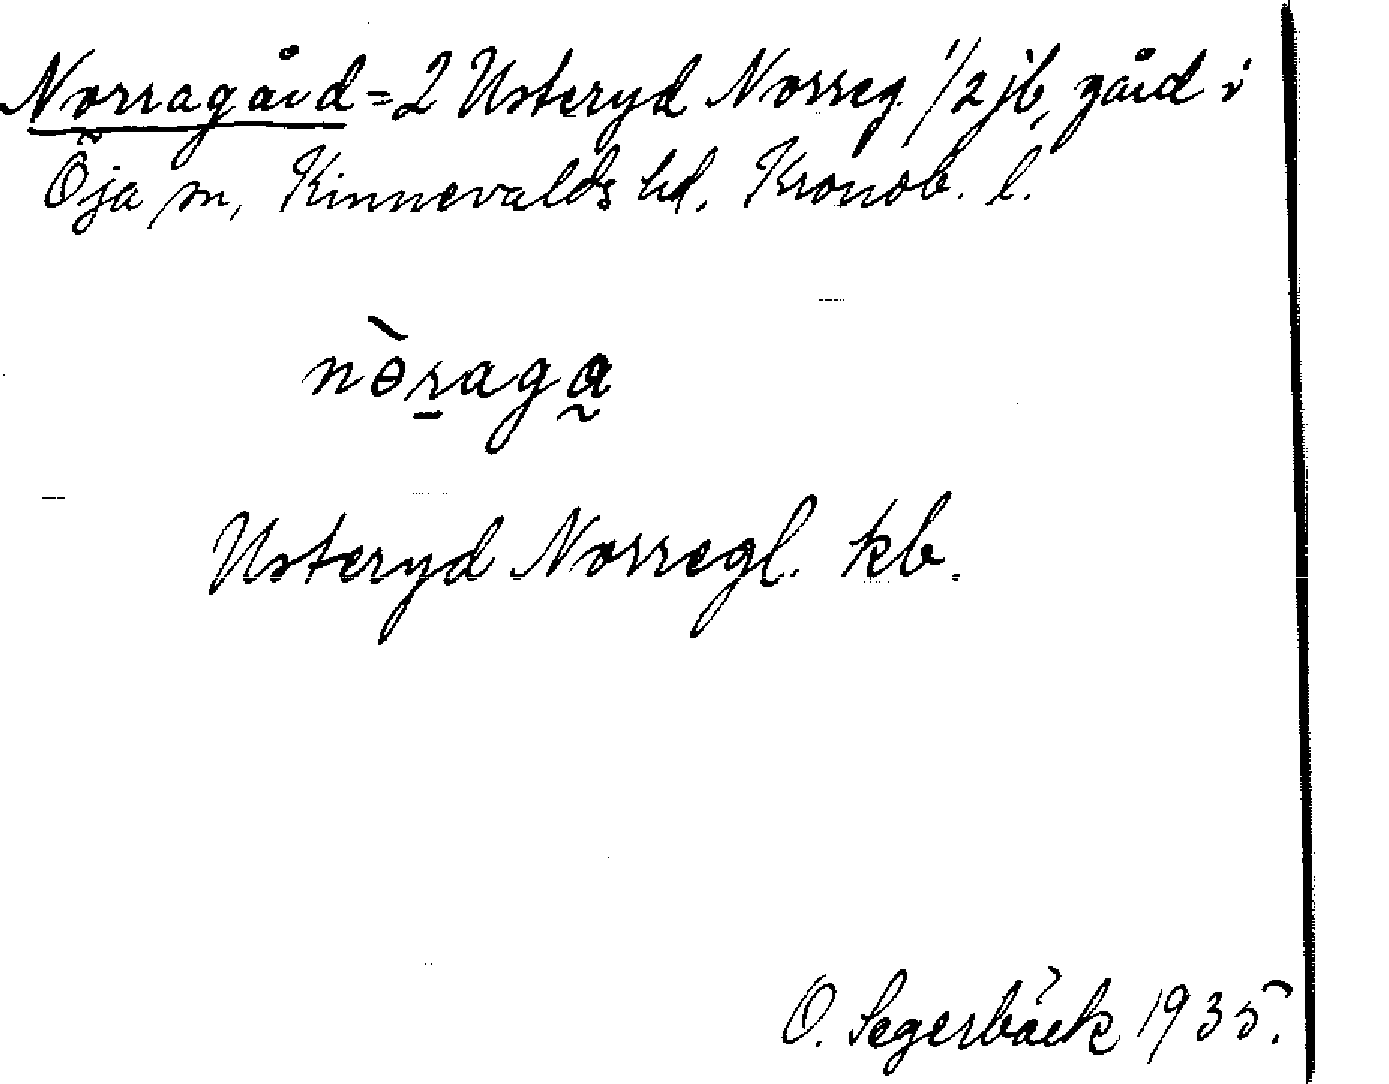 Norragård = 2 Usteryd Norreg. 1/2 jb, gård i
Öja sn, Kinnevalds hd, Kronob. l.
nɵ̀raga
Usteryd Norregl. kb.
O. Segerbäck 1935.